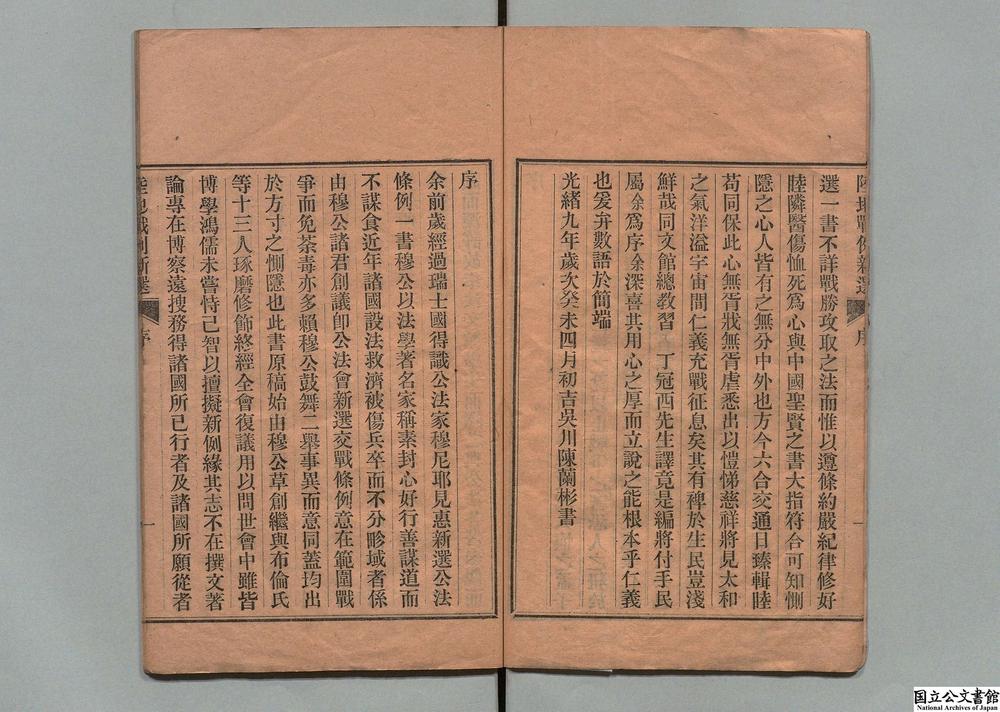 陸地戰例新選 序 一
選一書不詳戰勝攻取之法而惟以遵條約嚴紀律修好
睦隣醫傷恤死爲心與中國聖賢之書大指符合可知惻
隱之心人皆有之無分中外也方今六合交通日臻輯睦
苟同保此心無胥戕無胥虐悉出以愷悌慈祥將見太和
之氣洋溢宇宙間仁義充戰征息矣其有裨於生民豈淺
鮮哉同文館總教習 丁冠西先生譯竟是編將付手民
屬余爲序余深喜其用心之厚而立說之能根本乎仁義
也爰弁數語於簡端
光緒九年歲次癸未四月初吉吳川陳蘭彬書
序
余前歲經過瑞士國得識公法家穆尼耶見惠新選公法
條例一書穆公以法學著名家稱素封心好行善謀道而
不謀食近年諸國設法救濟被傷兵卒而不分畛域者係
由穆公諸君創議卽公法會新選交戰條例意在範圍戰
爭而免荼毒亦多賴穆公鼓舞二舉事異而意同蓋均出
於方寸之惻隱也此書原稿始由穆公草創繼與布倫氏
等十三人琢磨修飾終經全會復議用以問世會中雖皆
博學鴻儒未嘗恃己智以擅擬新例緣其志不在撰文著
論專在博察遠搜務得諸國所已行者及諸國所願從者
陸地戰例新選 序 一
国立公文書館
National Archives of Japan